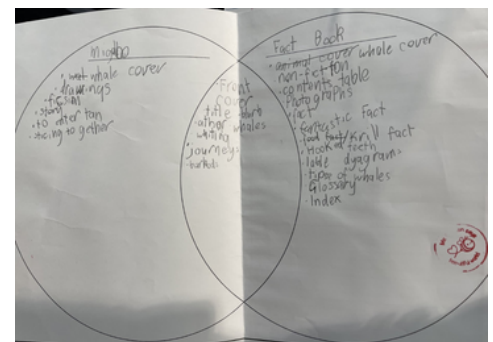 whale cover
drawings
fiction
story
to enter tan
sticing together
Front
cover
title
other whales
writing
journeys
Fact Book
cover whole cover
non-fiction
contents table
photographs
fact
fantastic Fact
fact
Hook of teeth
lable dyagrams
tipes of whales
Glossary
Index